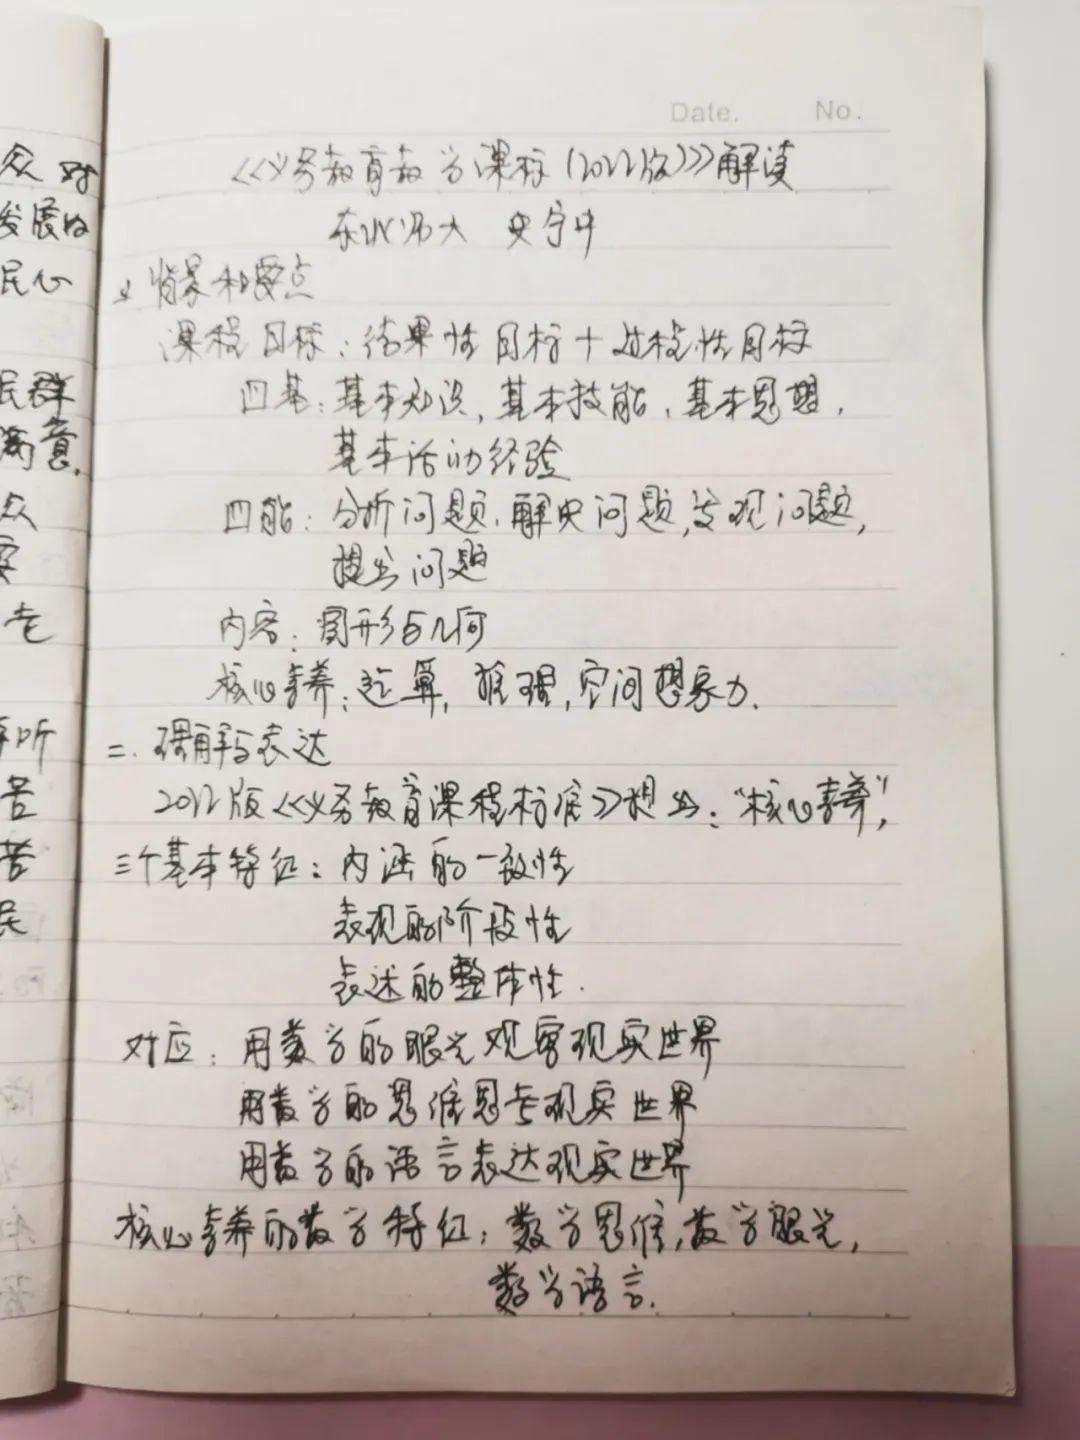 众 对
发展的
民心
民群
满意.
众
老
听
苦
苦
民
Date. No.
《《义务教育教学课标(2022版)》》解读
东北师大 史宁中
背景和要点
课程目标:结果性目标+过程性目标
四基:基本知识,基本技能,基本思想,
基本活动经验
四能:分析问题,解决问题,发现问题,
提出问题
内容:图形与几何
核心素养:运算,推理,空间想象力.
二.理解与表达
2022版《《义务教育课程标准》》提出:“核心素养”,
三个基本特征:内涵的一致性
表现的阶段性
表述的整体性.
对应:用数学的眼光观察现实世界
用数学的思维思考现实世界
用数学的语言表达现实世界
核心素养的数学特征:数学思维,数学眼光,
数学语言.